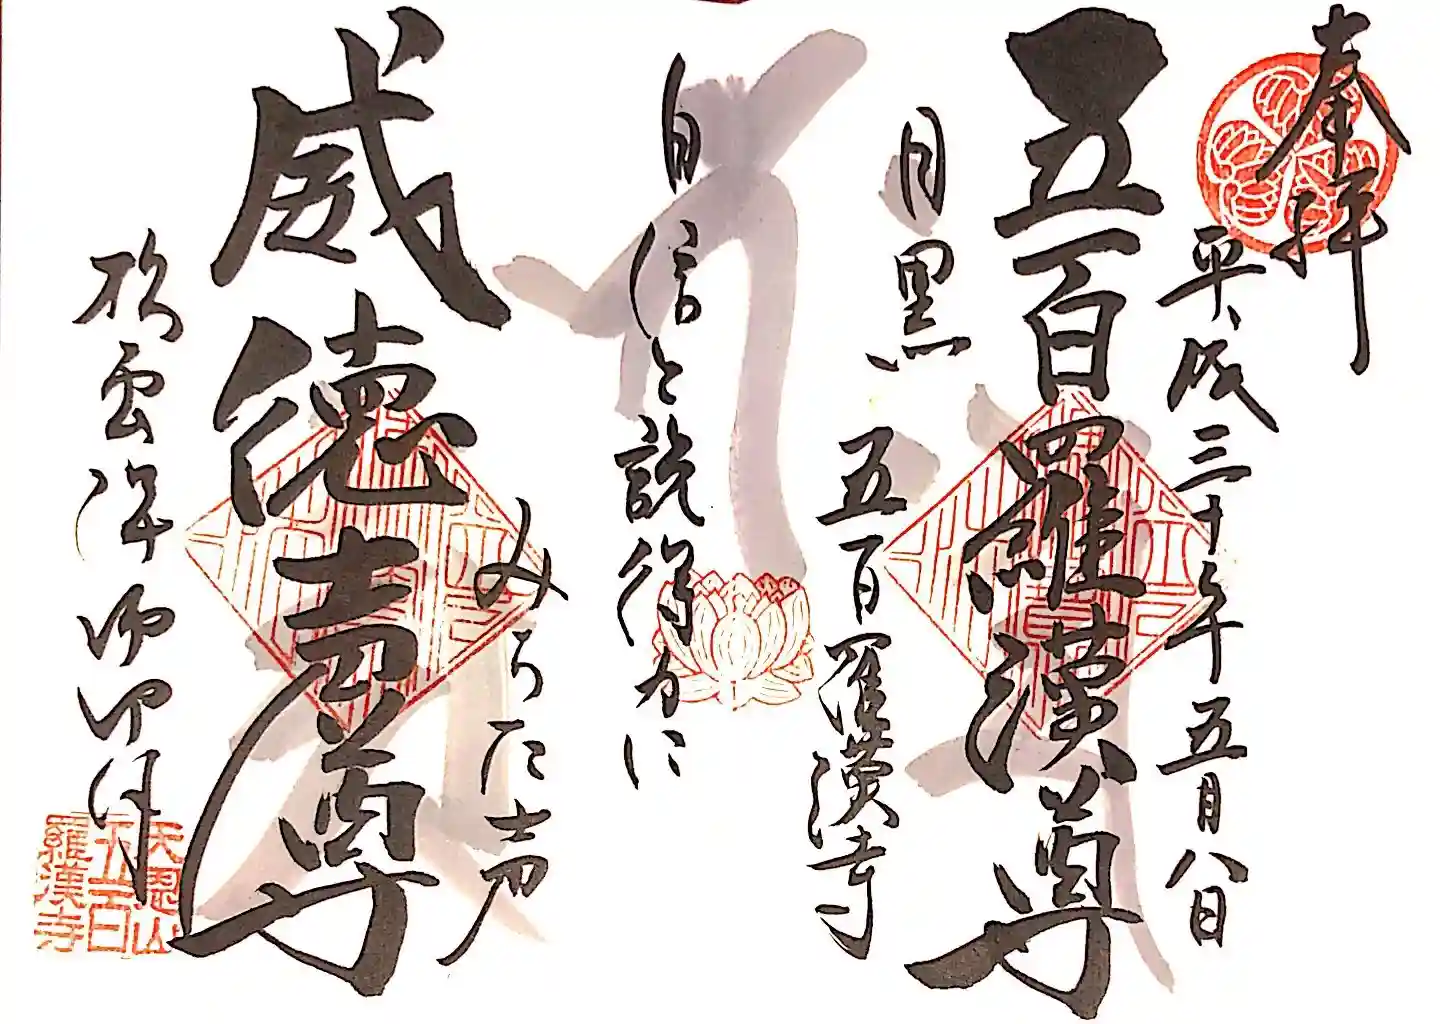 奉拝
平成三十年五月八日
五百羅漢尊
目黒 五百羅漢寺
自信と説得力に
みちた声
威徳声尊
松雲禅
天恩山
五百
羅漢寺